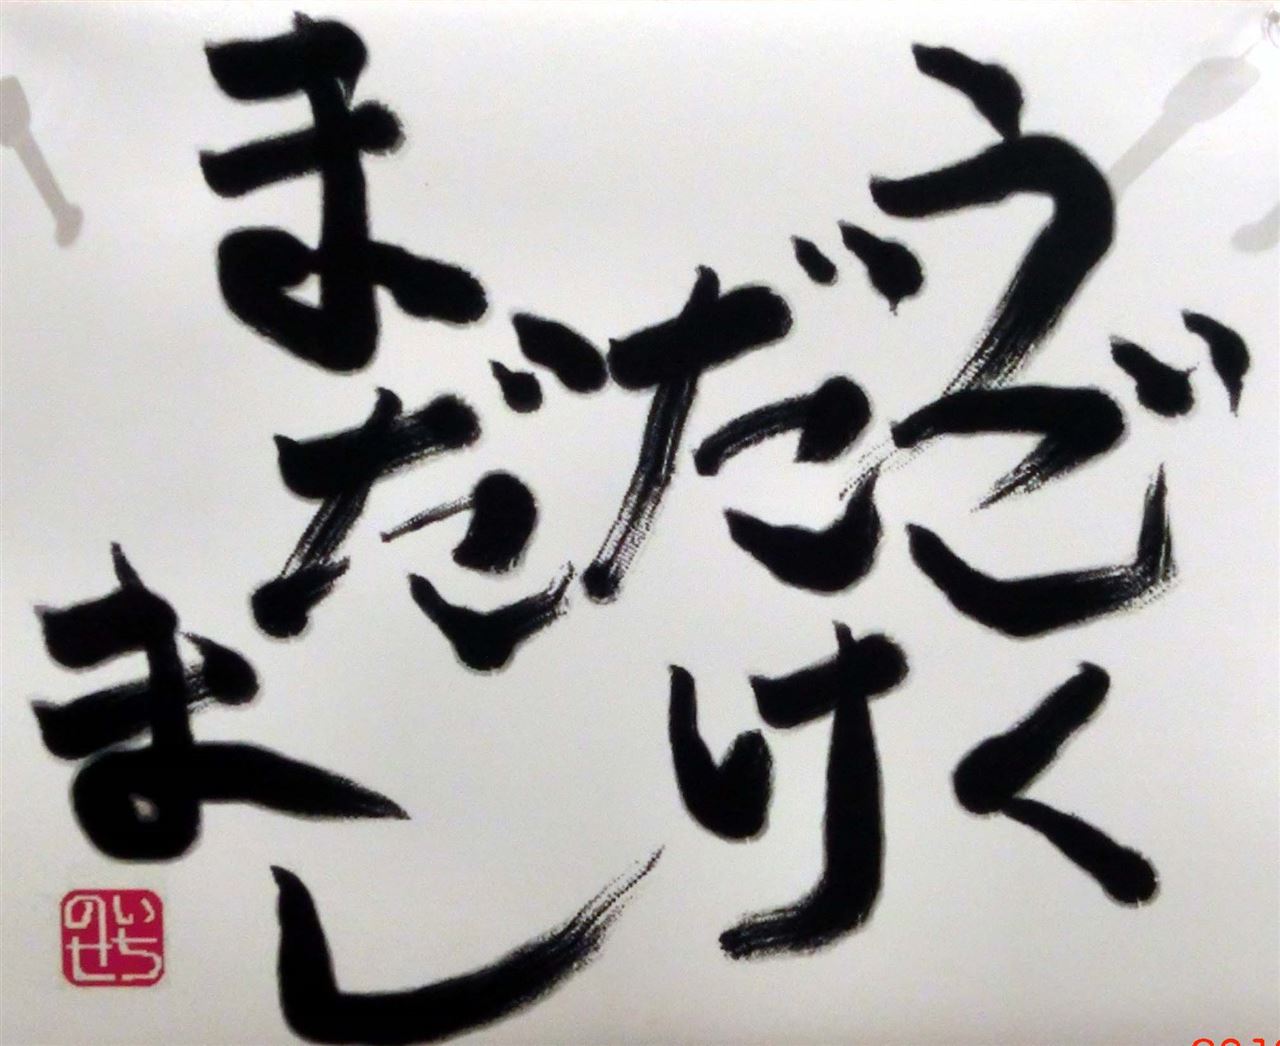 うごく
だけ
まだ
まし
いち
のせ